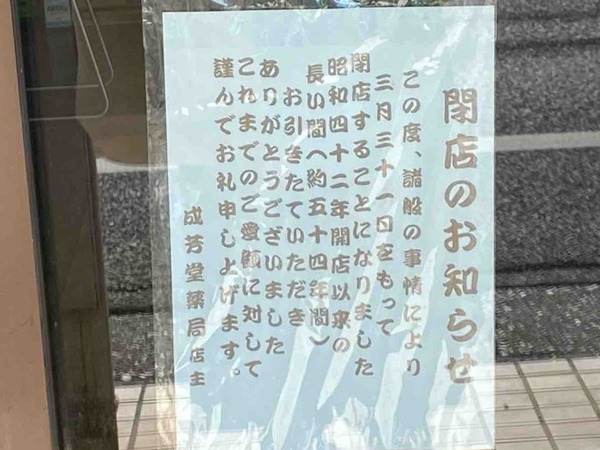 閉店のお知らせ
この度、諸般の事情により
三月三十一日をもって
閉店することになりました
昭和四十二年開店以来の
長い間(約五十四年間)
お引きたていただき
ありがとうございました
これまでのご愛顧に対して
謹んでお礼申し上げます。
成芳堂薬局店主